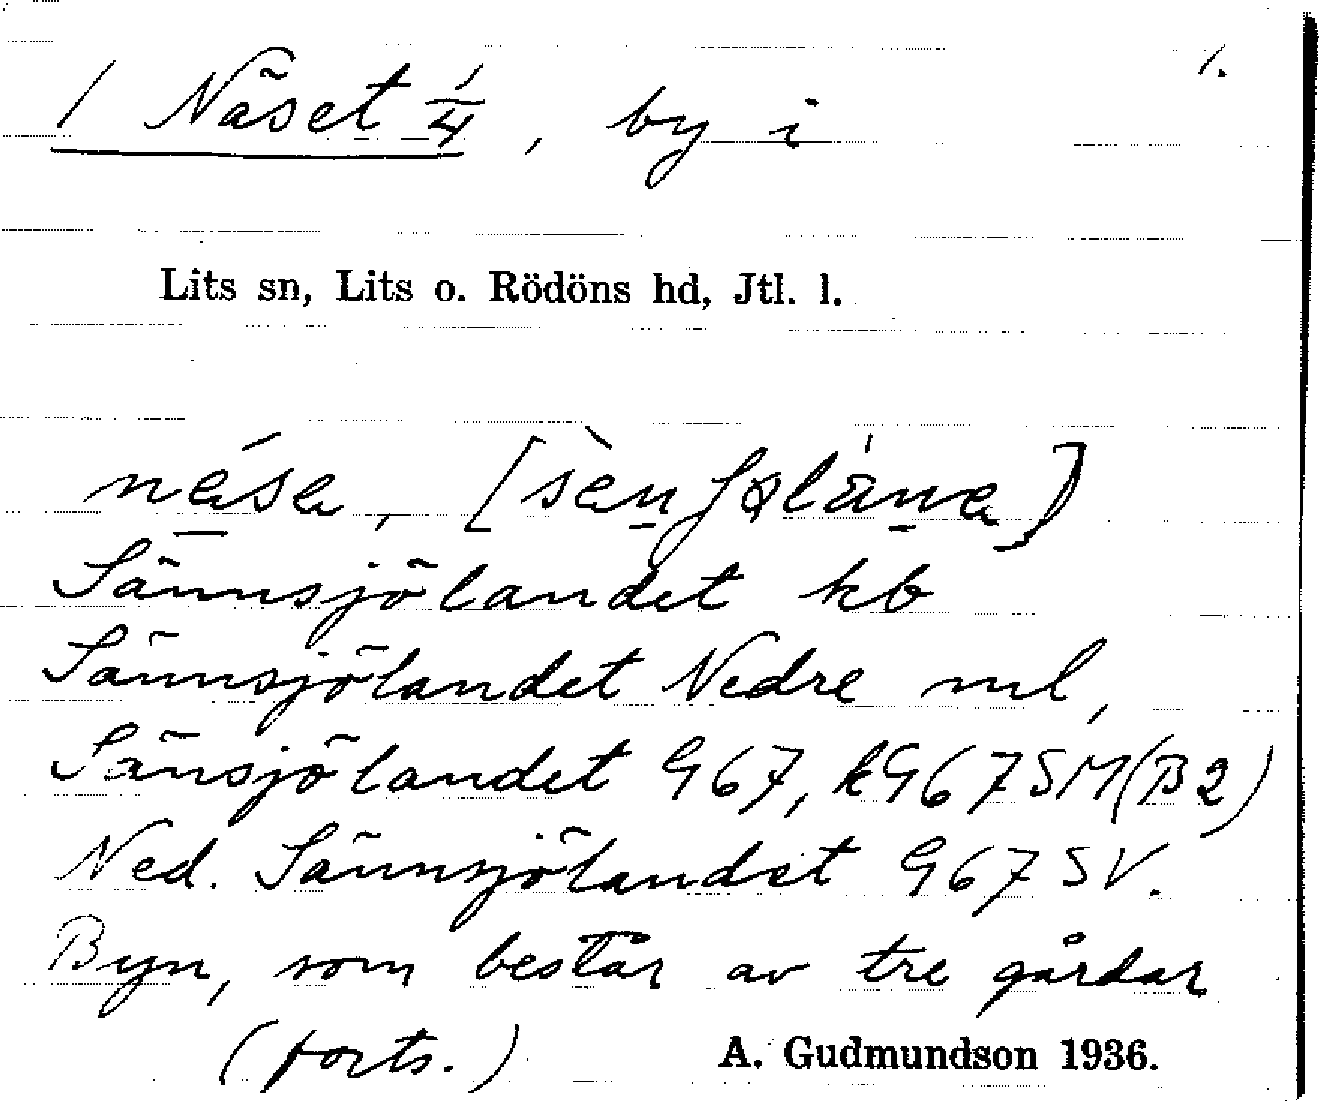 1 Näset 1/4, by i
1.
Lits sn, Lits o. Rödöns hd, Jtl. l.
Sännsjölandet kb
Sännsjölandet Nedre ml,
Sänsjölandet G67, kG67SM(B2)
Ned. Sännsjölandet G67SV.
Byn, som består av tre gårdar
(forts.)
A. Gudmundson 1936.